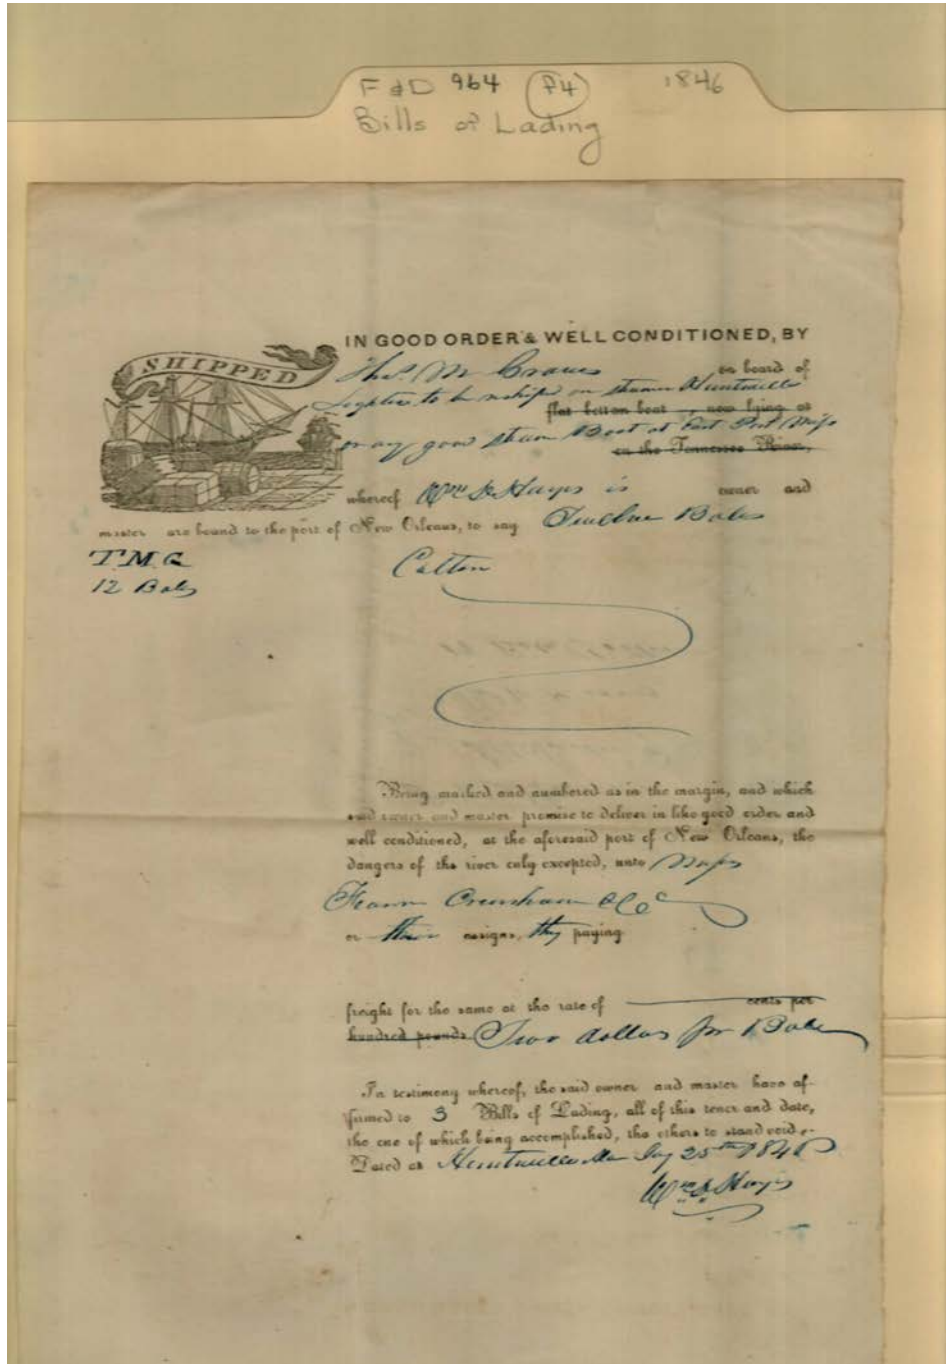 F & D 964 P4 1846
Bills of Lading
SHIPPED
IN GOOD ORDER & WELL CONDITIONED, BY
Thos. M. on board of
to be on steamer Huntsville
flat bottom boat , now lying at
or any good steam Boat at East Port Miss
on the Tennessee River,
whereof Wm S Hayes is owner and
master are bound to the port of New Orleans, to say Twelve Bales
T.M.G.
12 Bales
Cotton
Being marked and numbered as in the margin, and which
said owner and master promise to deliver in like good order and
well conditioned, at the aforesaid port of New Orleans, the
dangers of the river only excepted, unto Messrs
Fearn Crenshaw & Co
or their assigns, they paying
freight for the same at the rate of cents per
hundred pounds Two dollars per Bale
In testimony whereof, the said owner and master have af-
firmed to 3 Bills of Lading, all of this tenor and date,
the one of which being accomplished, the others to stand void.
Dated at Huntsville Ala 25th 1846
Wm S Hayes